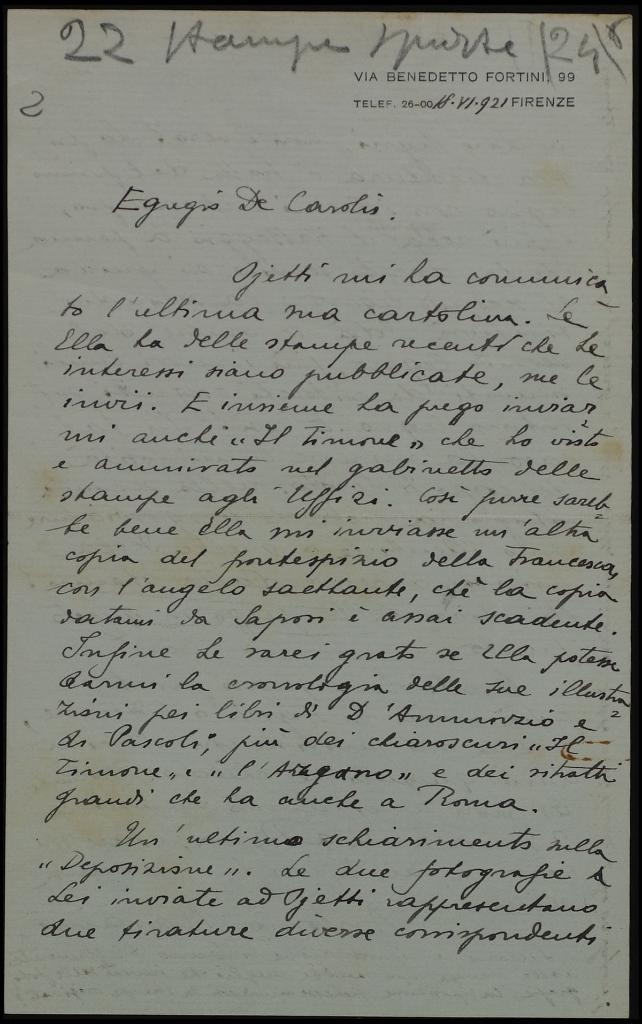 22 Stampe sparse
2
VIA BENEDETTO FORTINI, 99
TELEF. 26-00 18.VI.921 FIRENZE
Egregio De Carolis.
Ojetti mi ha comunica-
to l'ultima sua cartolina. Se
Ella ha delle stampe recenti che Le
interessi siano pubblicate, me le
invii. E insieme La prego inviar
mi anche "Il Timone" che ho visto
e ammirato nel gabinetto delle
stampe agli Uffizi. Così pure sareb=
be bene Ella mi inviasse un'altra
copia del frontespizio della Francesca,
con l'angelo saettante, chè la copia
datami da Sapori è assai scadente.
Infine Le sarei grato se Ella potesse
darmi la cronologia delle sue illustra=
zioni pei libri di D'Annunzio e
di Pascoli, più dei chiaroscuri "Il
Timone" e "l'Argano" e dei ritratti
grandi che ha anche a Roma.
Un'ultimo schiarimento sulla
"Deposizione". Le due fotografie da
Lei inviate ad Ojetti rappresentano
due tirature diverse corrispondenti